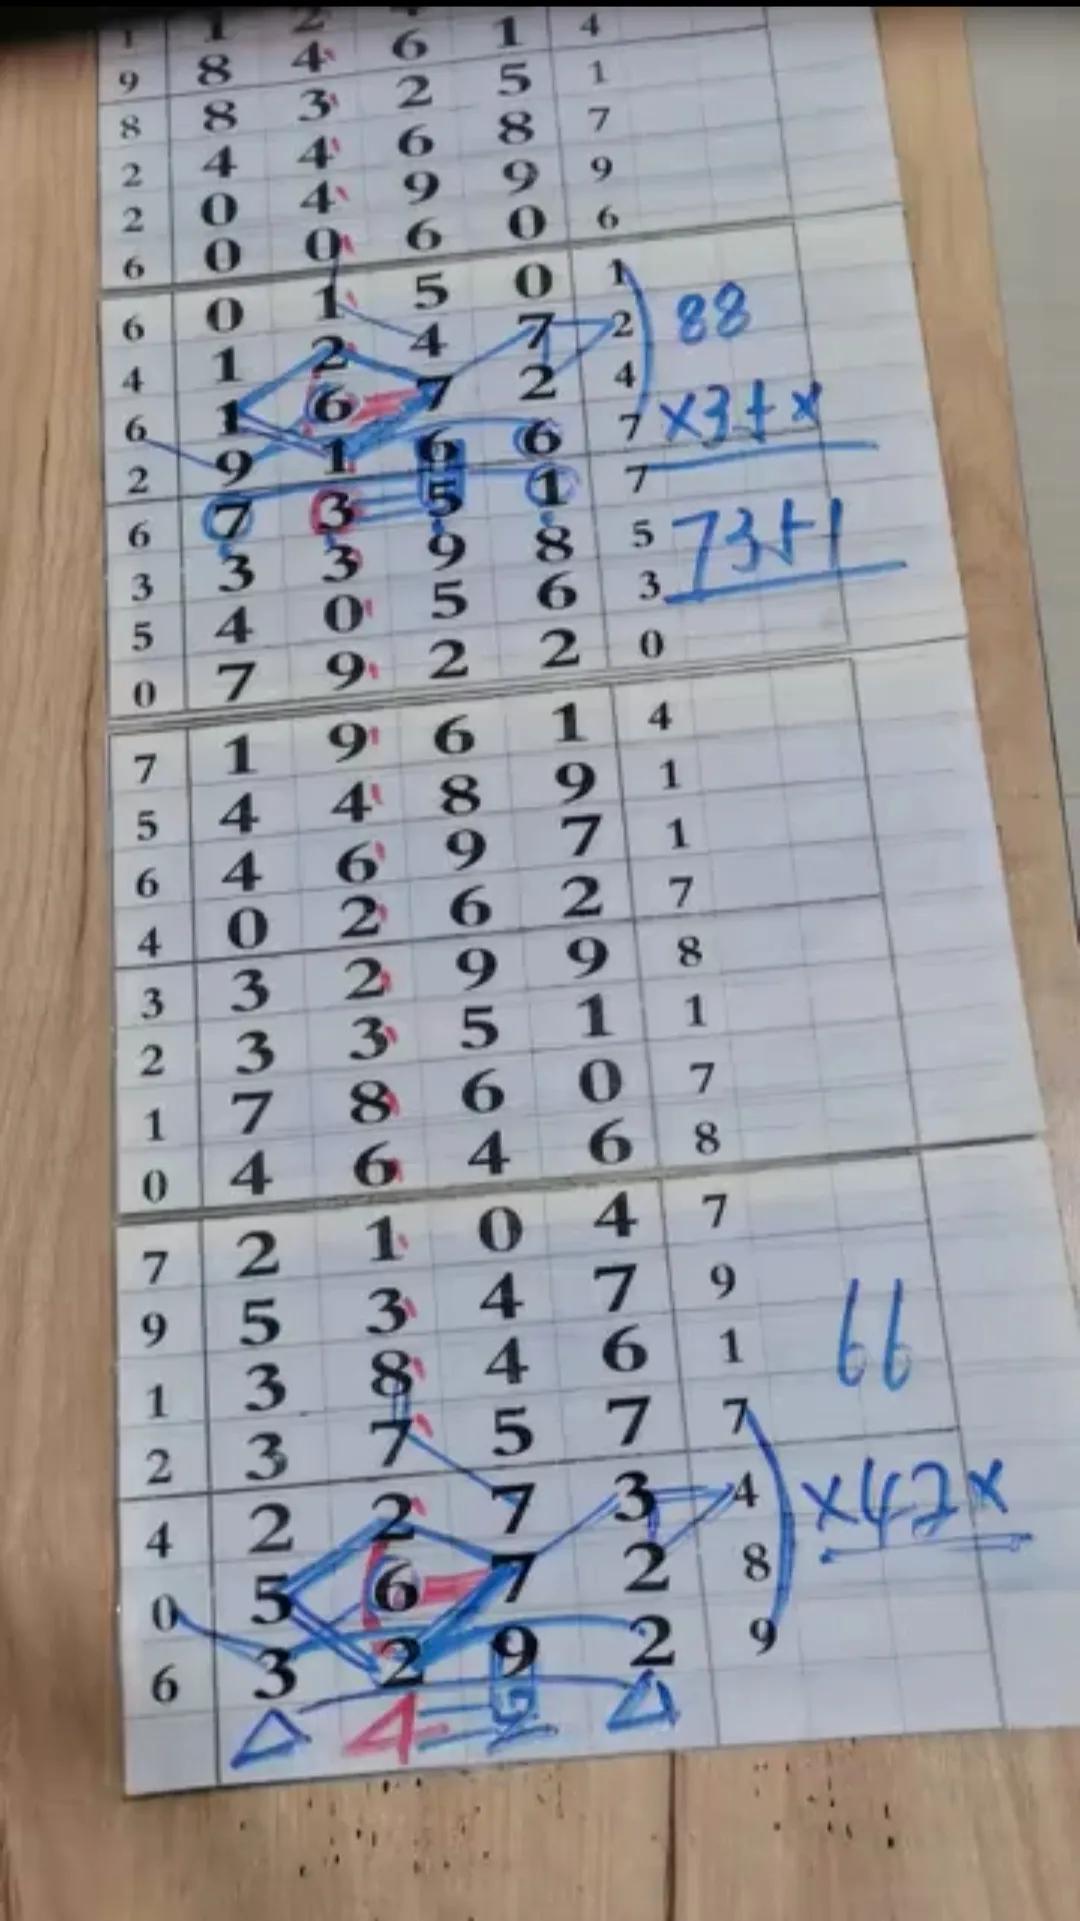 9 8 4 6 1 4
8 8 3 2 5 1
2 4 4 6 8 7
2 0 4 9 9 9
6 0 0 6 0 6
6 0 1 5 0 1
4 1 2 4 7 2 88
6 1 6 7 2 4
2 9 1 6 6 7 x3+x
6 7 3 5 1 7
3 3 3 9 8 5 73+1
5 4 0 5 6 3
0 7 9 2 2 0
7 1 9 6 1 4
5 4 4 8 9 1
6 4 6 9 7 1
4 0 2 6 2 7
3 3 2 9 9 8
2 3 3 5 1 1
1 7 8 6 0 7
0 4 6 4 6 8
7 2 1 0 4 7
9 5 3 4 7 9
1 3 8 4 6 1 66
2 3 7 5 7 7
4 2 2 7 3 4 x42x
0 5 6 7 2 8
6 3 2 9 2 9
4